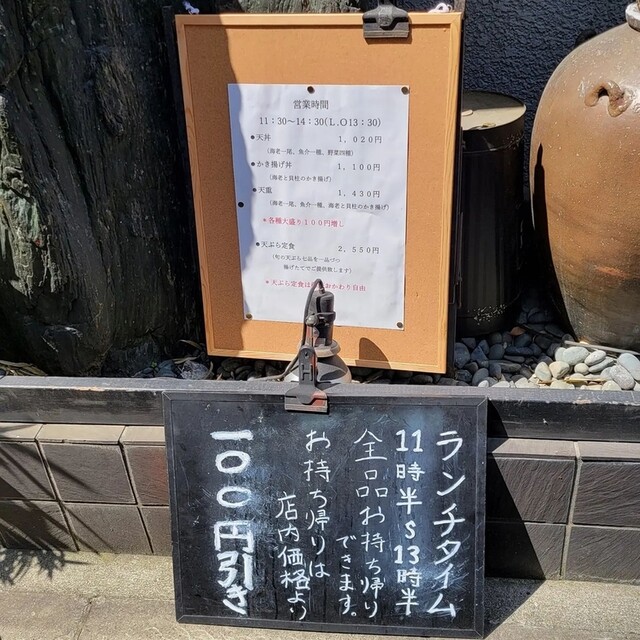 営業時間
11:30～14:30(L.O13:30)
●天丼 1,020円
(海老一尾、魚介一種、野菜四種)
●かき揚げ丼 1,100円
(海老と貝柱のかき揚げ)
●天重 1,430円
(海老一尾、魚介一種、海老と貝柱のかき揚げ)
*各種大盛り100円増し
●天ぷら定食 2,550円
(旬の天ぷら七品を一品づつ
揚げたてでご提供致します)
*天ぷら定食は おかわり自由
ランチタイム
11時半s13時半
全品お持ち帰り
できます。
お持ち帰りは
店内価格より
一〇〇円引き